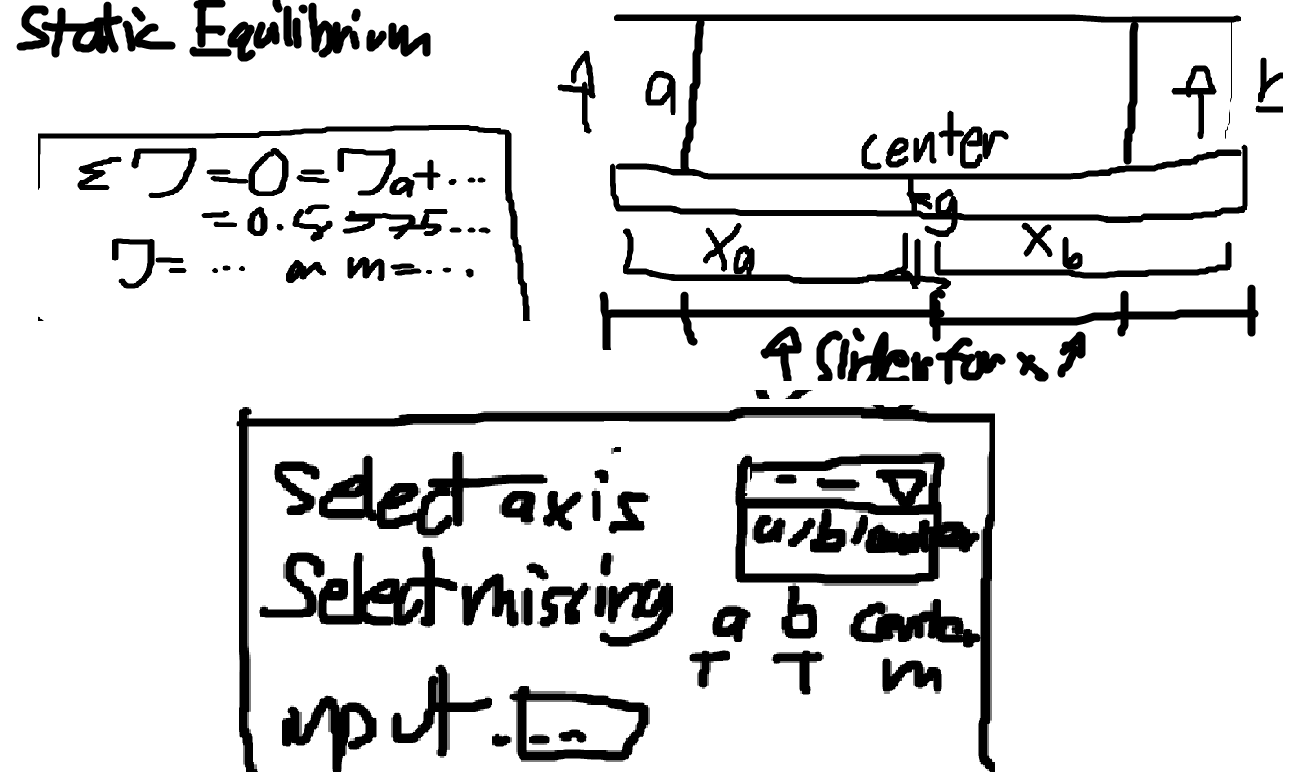 Static Equilibrium
a
center
g
Σ T = 0 = Ta + ...
= 0.5 ...
T = ... or m = ....
xa
xb
slider for x
Select axis
a, b, center
Select missing
a b center
T T m
input ...